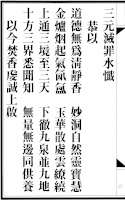 三元滅罪水懺
恭以
道德無為清靜香　妙洞自然靈寶慧
金爐烟起氣氤氳　玉華散處雲繚繞
上通三境至三天　下徹九泉並九地
十方三界悉聞知　無量無邊同供養
以今焚香虔誠上啟